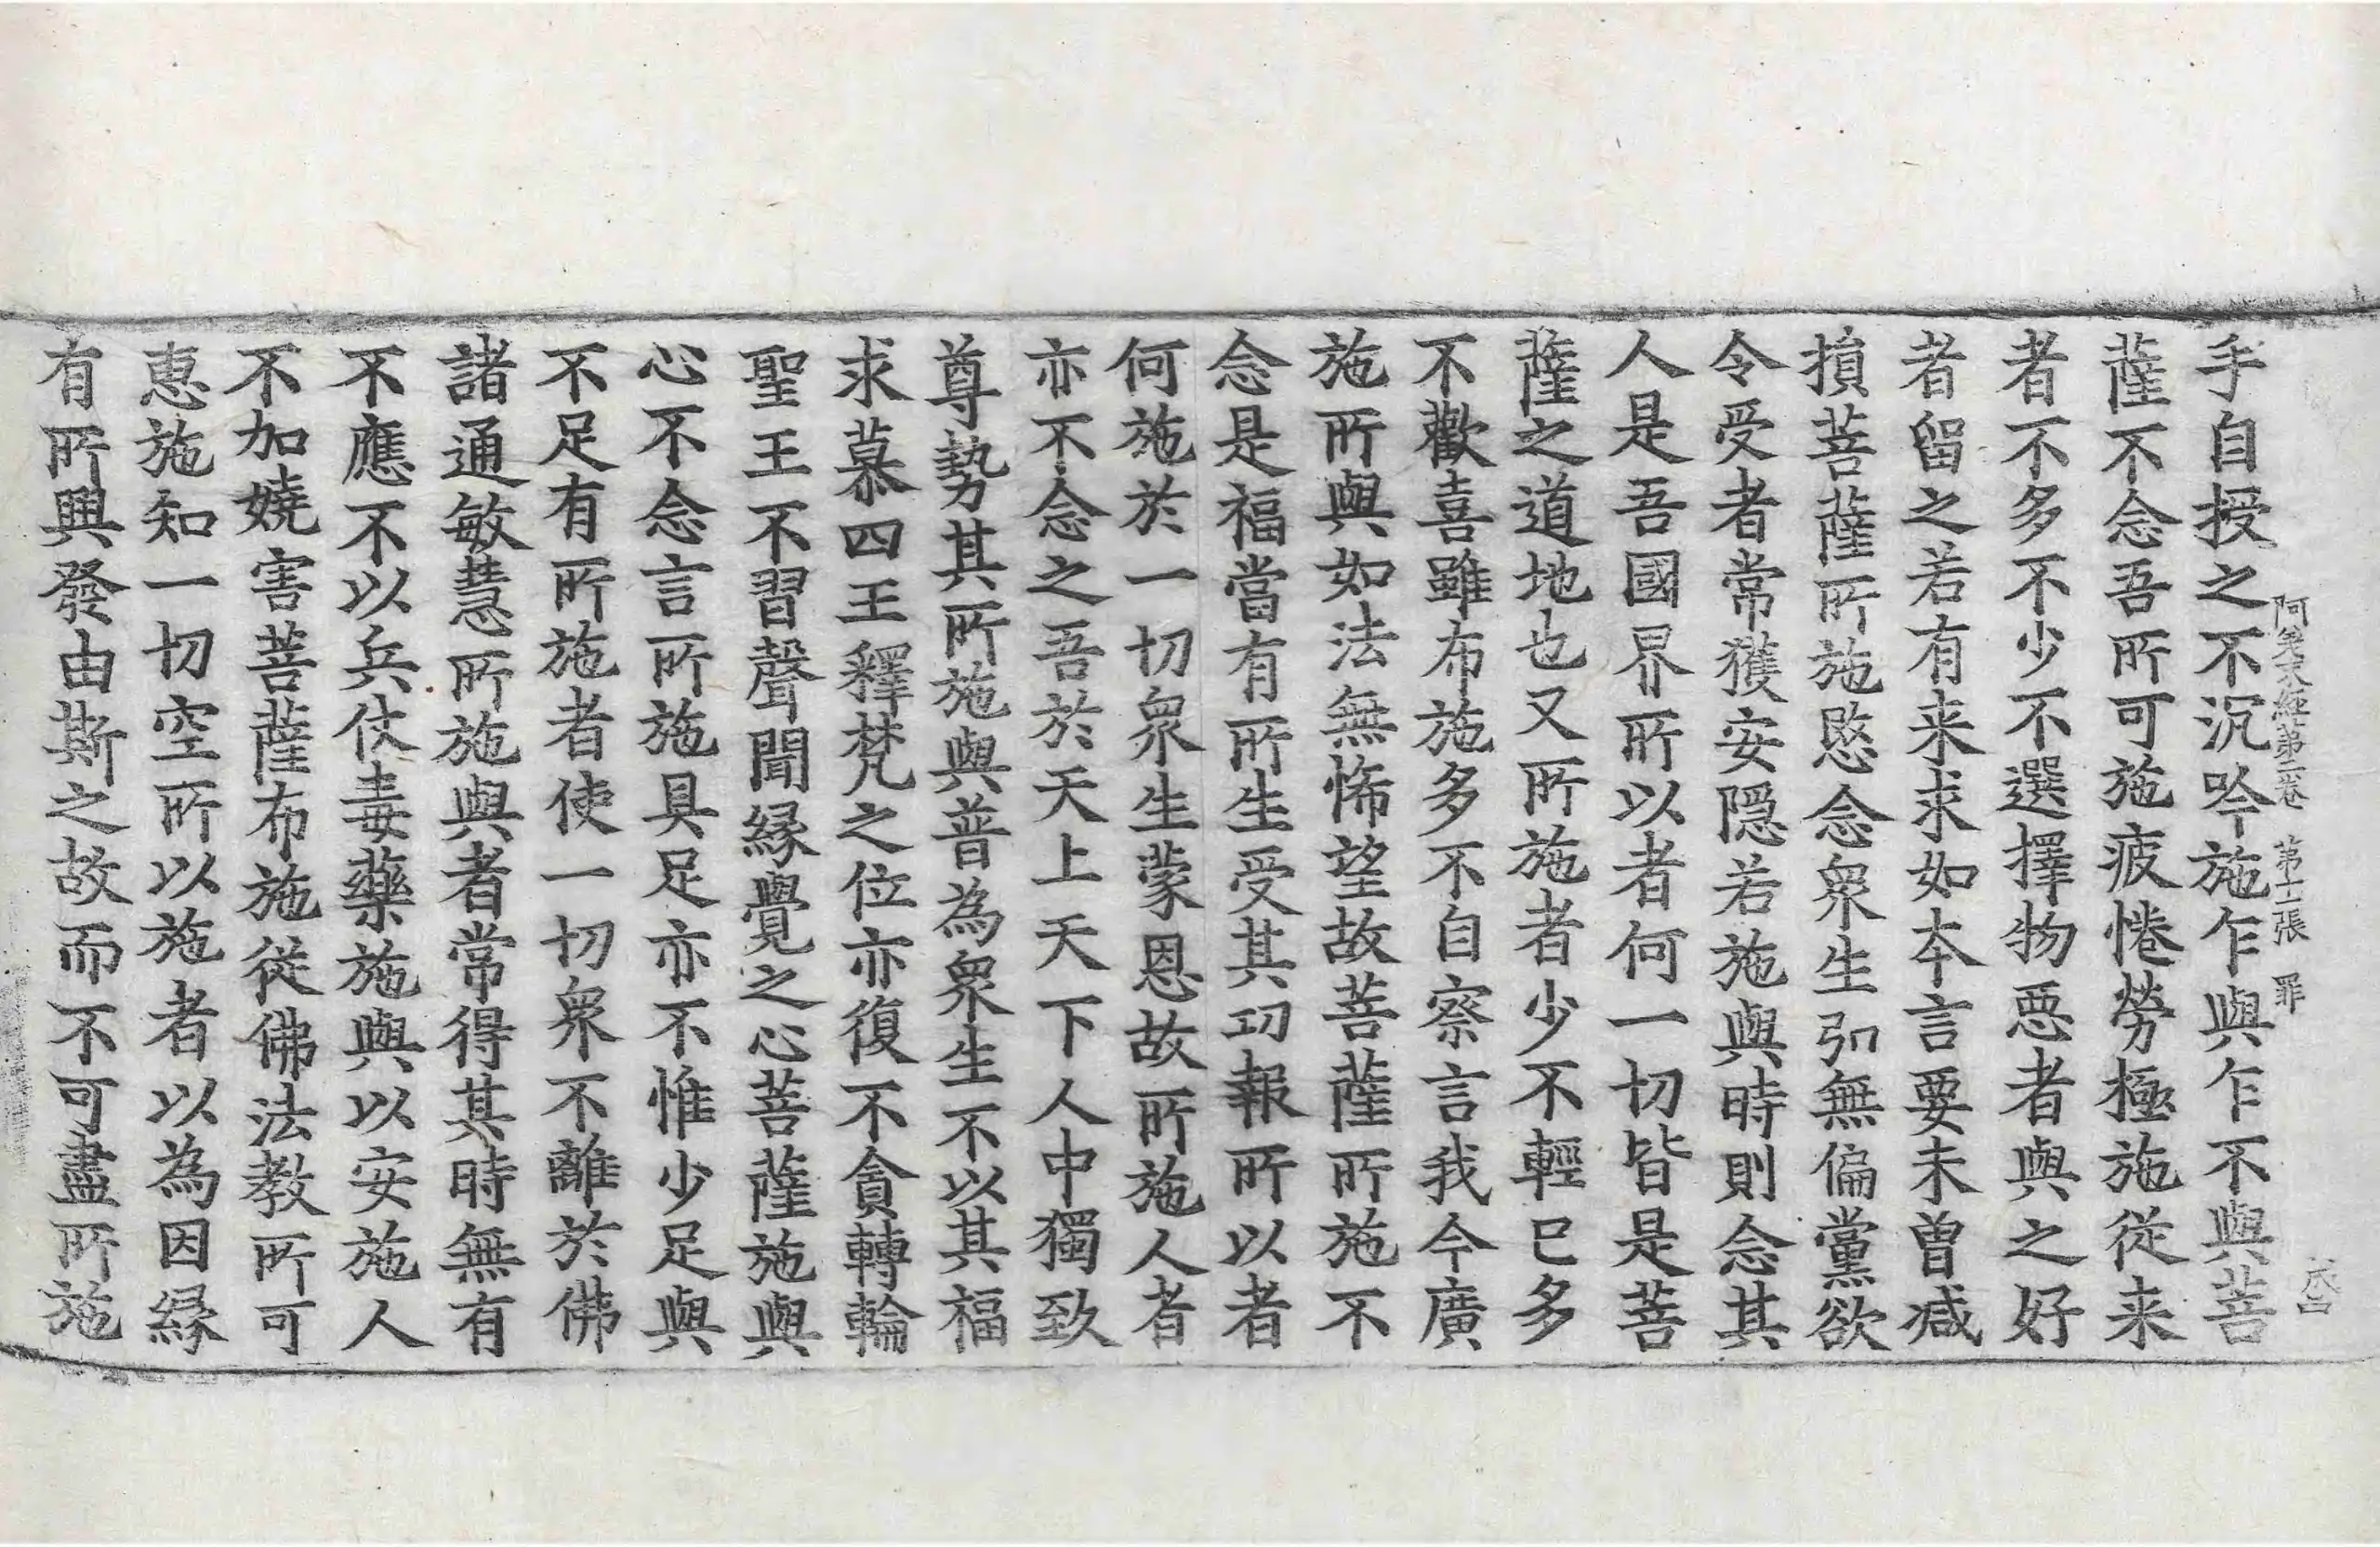 阿差末經第二卷　第十二張　罪
手自授之不沉吟施乍與乍不與菩
薩不念吾所可施疲惓勞極施從来
者不多不少不選擇物惡者與之好
者留之若有来求如夲言要未曽减
損菩薩所施愍念衆生引無偏黨欲
令受者常獲安隠若施與時則念其
人是吾國界所以者何一切皆是菩
薩之道地也又所施者少不輕已多
不歡喜雖布施多不自察言我今廣
施所與如法無悕望故菩薩所施不
念是福當有所生受其功報所以者
何施於一切衆生蒙恩故所施人者
亦不念之吾於天上天下人中獨致
尊勢其所施與普為衆生不以其福
求慕四王釋梵之位亦復不貪轉輪
聖王不習聲聞縁覺之心菩薩施與
心不念言所施具足亦不惟少足與
不足有所施者使一切衆不離於佛
諸通敏慧所施與者常得其時無有
不應不以兵仗毒藥施與以安施人
不加嬈害菩薩布施從佛法教所可
惠施知一切空所以施者以為因縁
有所興發由斯之故而不可盡所施